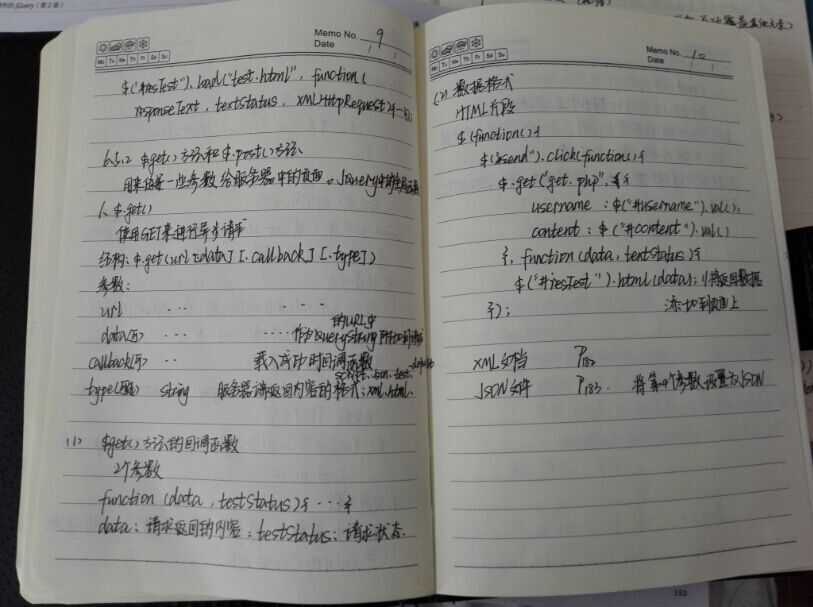 jQuery(第2版)
Memo No. 9
Date
Mo Tu We Th Fr Sa Su
$("#resTest").load("test.html", function(
responseText, textStatus, XMLHttpRequest){…});
6.5.2 $.get()方法和$.post()方法
用来传递一些参数给服务器中的页面。Jquery中的全局函数
1、$.get()
使用GET来进行异步请求
结构: $.get(url [,data] [,callback] [,type])
参数:
url … …
的URL中
data(可) … 作为QueryString附加到请求
callback(可) … 载入成功时回调函数
script、json、text、
type(可选) string 服务器端返回内容的格式: xml、html、
(1) $get()方法的回调函数
2个参数
function (data, testStatus){ … }
data: 请求返回的内容; testStatus: 请求状态.
Memo No. 10
Date
Mo Tu We Th Fr Sa Su
(2) 数据格式
HTML片段
$(function(){
$("#send").click(function(){
$.get("get.php", {
username : $("#username").val(),
content : $("#content").val()
}, function (data, textStatus){
$("#resTest").html(data); //将返回数据
}); 添加到页面上
XML文档 P182
JSON文件 P183. 将第四个参数设置为JSON
182